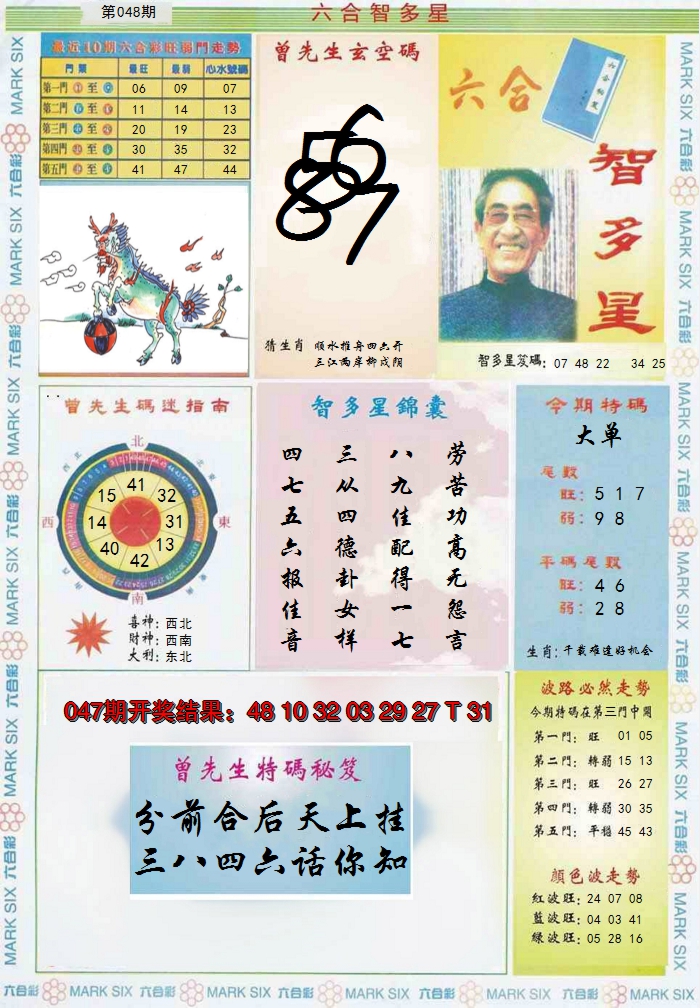 第048期
六合智多星
最近10期六合彩旺弱門走勢
門類 最旺 最弱 心水號碼
第一門 至 06 09 07
第二門 至 11 14 13
第三門 至 20 19 23
第四門 至 30 35 32
第五門 至 41 47 44
曾先生玄空碼
5 6
8 7
猜生肖 順水推舟四六开
三江两岸柳成阴
六合
六合秘笈
智多星
智多星笈碼: 07 48 22 34 25
曾先生碼迷指南
北
西北 東北
41
15 32
西 14 31 東
40 13
42
南
喜神: 西北
財神: 西南
大利: 东北
智多星錦囊
劳苦功高无怨言
八九佳配得一七
三从四德卦女样
四七五六报佳音
今期特碼
大单
尾數
旺: 5 1 7
弱: 9 8
平碼尾數
旺: 4 6
弱: 2 8
生肖: 千載难逢好机会
047期开奖结果: 48 10 32 03 29 27 T 31
曾先生特碼秘笈
分前合后天上挂
三八四六话你知
波路必然走勢
今期特碼在第三門中開
第一門: 旺 01 05
第二門: 轉弱 15 13
第三門: 旺 26 27
第四門: 轉弱 30 35
第五門: 平穩 45 43
顏色波走勢
紅波旺: 24 07 08
藍波旺: 04 03 41
綠波旺: 05 28 16
MARK SIX 六合彩 MARK SIX 六合彩 MARK SIX 六合彩 MARK SIX 六合彩 MARK SIX 六合彩